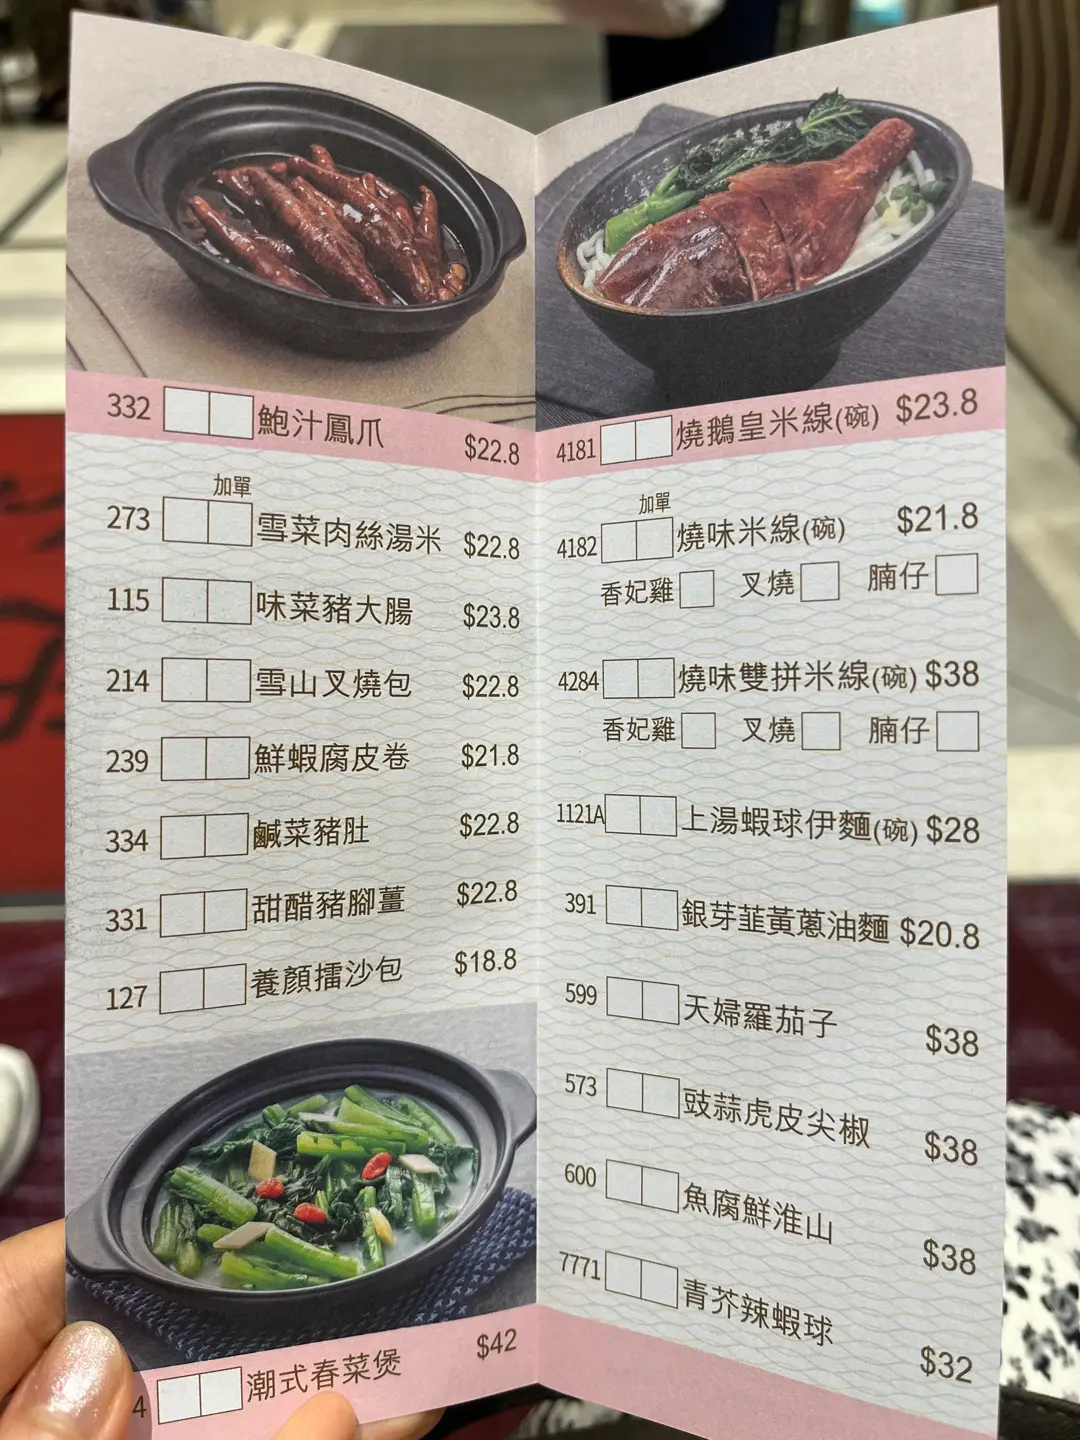 332 鮑汁鳳爪 $22.8
加單
273 雪菜肉絲湯米 $22.8
115 味菜豬大腸 $23.8
214 雪山叉燒包 $22.8
239 鮮蝦腐皮卷 $21.8
334 鹹菜豬肚 $22.8
331 甜醋豬腳薑 $22.8
127 養顏擂沙包 $18.8
4 潮式春菜煲 $42
4181 燒鵝皇米線(碗) $23.8
加單
4182 燒味米線(碗) $21.8
香妃雞 叉燒 腩仔
4284 燒味雙拼米線(碗) $38
香妃雞 叉燒 腩仔
1121A 上湯蝦球伊麵(碗) $28
391 銀芽韮黃蔥油麵 $20.8
599 天婦羅茄子 $38
573 豉蒜虎皮尖椒 $38
600 魚腐鮮淮山 $38
7771 青芥辣蝦球 $32